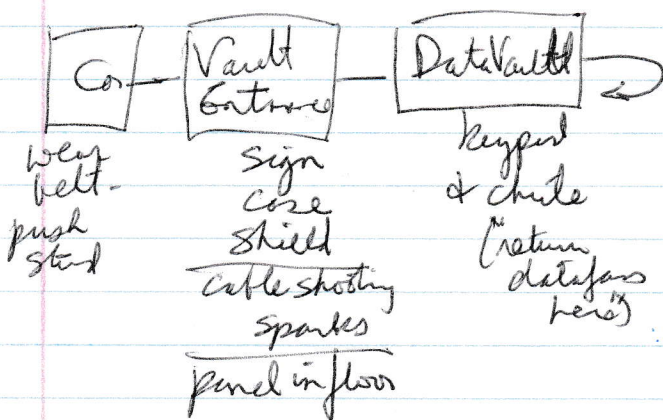 Cor
Vault
Entrance
DataVault
wear
belt -
push
stud
sign
case
shield
cable shooting
sparks
panel in floor
keypad
& chute
("return
datafans
here")